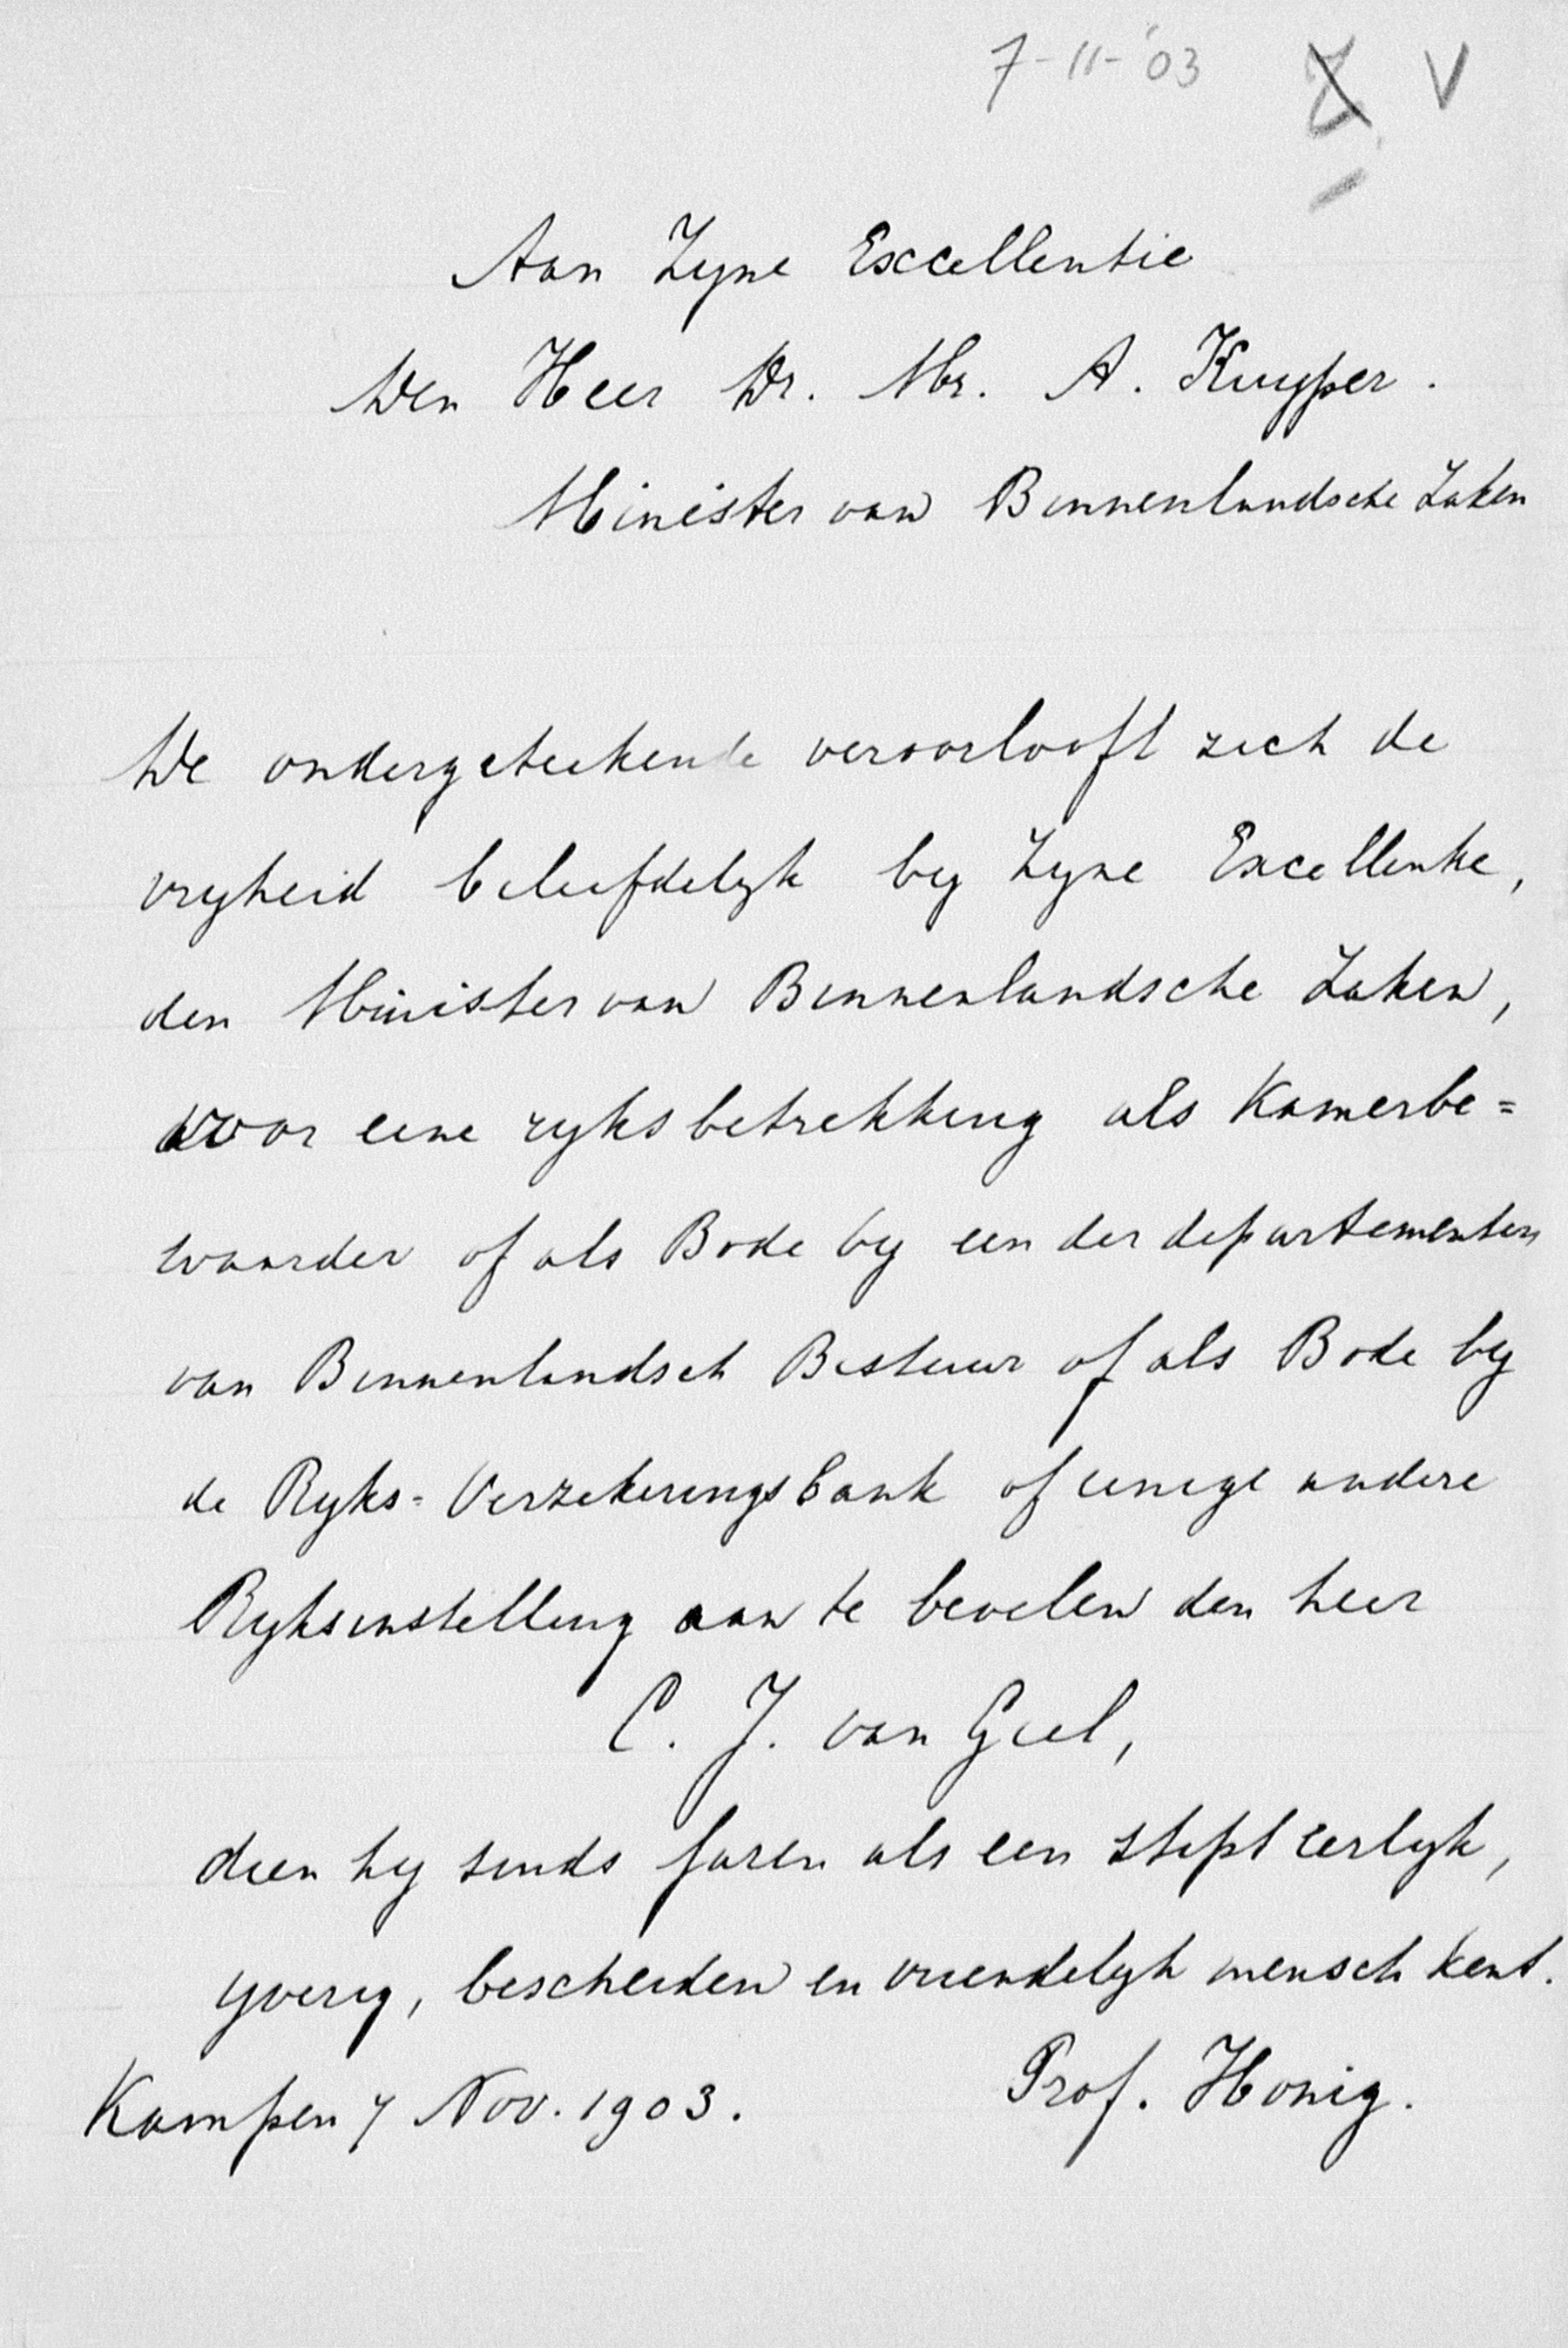 7-11-'03 V
Aan Zyne Exccellentie
Den Heer Dr. Mr. A. Kuyper.
Minister van Binnenlandsche Zaken
De ondergeteekende veroorlooft zich de
vryheid beleefdelyk by Zyne Excellentie,
den Minister van Binnenlandsche Zaken,
voor eene ryksbetrekking als Kamerbe=
waarder of als Bode by een der departementen
van Binnenlandsch Bestuur of als Bode by
de Ryks=Verzekeringsbank of eenige andere
Ryksinstelling aan te bevelen den heer
C. J. van Geel,
dien hy sinds jaren als een stipt eerlyk,
yverig, bescheiden en vriendelyk mensch kent.
Prof. Honig.
Kampen 7 Nov. 1903.